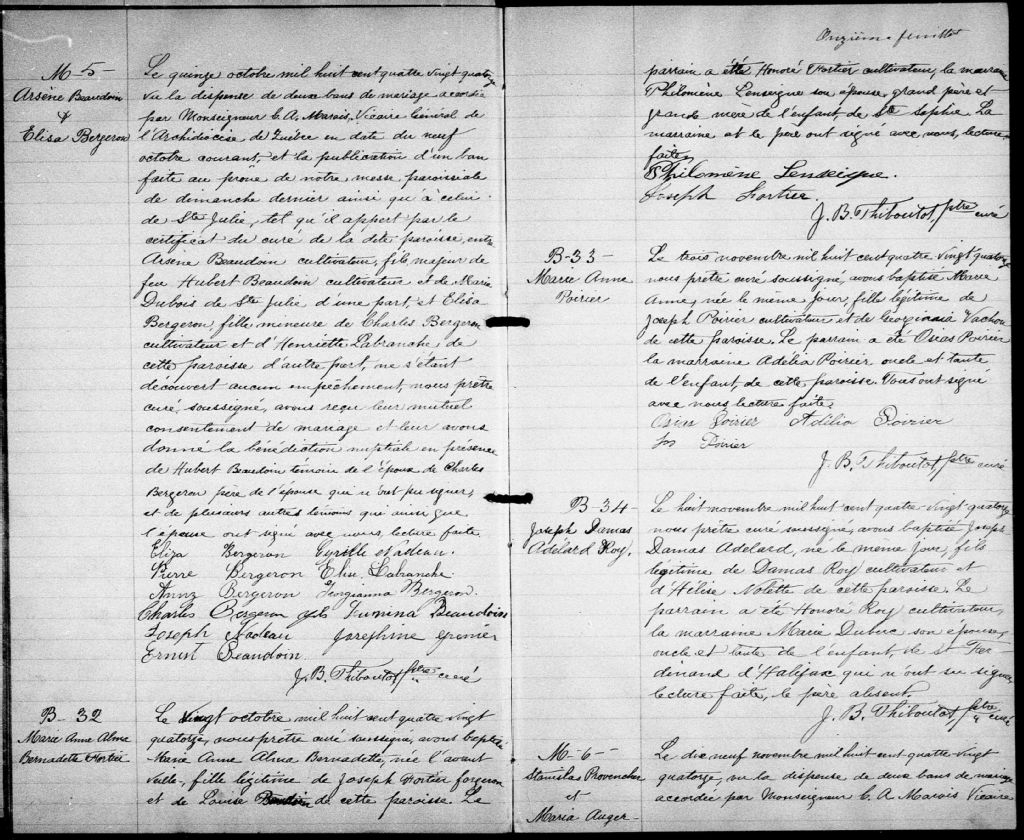 M-5-
Arsène Beaudoin
&
Elisa Bergeron
Le quinze octobre mil huit cent quatre vingt quatorze
vu la dispense de deux bans de mariage accordée
par Monseigneur C. A. Marois, Vicaire Général de
l'Archidiocèse de Québec en date du neuf
octobre courant, et la publication d'un ban
faite au prône de notre messe paroissiale
de dimanche dernier ainsi qu'à celui
de Ste Julie, tel qu'il appert par le
certificat du curé de la dite paroisse, entre
Arsène Beaudoin cultivateur, fils majeur de
feu Hubert Beaudoin cultivateur et de Marie
Dubois de Ste Julie d'une part, et Elisa
Bergeron fille mineure de Charles Bergeron
cultivateur et d'Henriette Labranche, de
cette paroisse d'autre part, ne s'étant
découvert aucun empêchement, nous prêtre
curé, soussigné, avons reçu leur mutuel
consentement de mariage et leur avons
donné la bénédiction nuptiale en présence
de Hubert Beaudoin temoin de l'époux de Charles
Bergeron père de l'épouse qui n'ont pu signer,
et de plusieurs autres temoins qui ainsi que
l'épouse ont signé avec nous, lecture faite.
Eliza Bergeron Cyrille Nadeau.
Pierre Bergeron Elise Labranche
Annz Bergeron Georgianna Bergeron.
Charles Bergeron fils Firmina Beaudoin
Joseph Nadeau Josephine grenier
Ernest Beaudoin
J. B. Thiboutot, ptre curé
B-32
Marie Anne Alma
Bernadette Fortier
Le vingt octobre mil huit cent quatre vingt
quatorze, nous prêtre curé soussigné, avons baptisé
Marie Anne Alma Bernadette, née l'avant
veille, fille légitime de Joseph Fortier forgeron
et de Louise de cette paroisse. Le
Onzième feuillet
parrain a été Honoré Fortier cultivateur, la marraine
Philomène Lenseigne son épouse, grand père et
grande mère de l'enfant, de Ste Sophie. La
marraine et le père ont signé avec nous, lecture
faite,
Philomène Lenseigne.
Joseph Fortier
J. B. Thiboutot, ptre curé
B-33-
Marie Anne
Poirier
Le trois novembre mil huit cent quatre vingt quatorze
nous prêtre curé soussigné, avons baptisé Marie
Anne, née le même jour, fille légitime de
Joseph Poirier cultivateur et de Georgianna Vachon
de cette paroisse. Le parrain a été Osias Poirier
la marraine Adélia Poirier oncle et tante
de l'enfant, de cette paroisse. Tous ont signé
avec nous lecture faite.
Osias Poirier Adélia Poirier
Jos Poirier
J. B. Thiboutot, ptre curé
B-34-
Joseph Damas
Adélard Roy.
Le huit novembre mil huit cent quatre vingt quatorze
nous prêtre curé soussigné, avons baptisé Joseph
Damas Adelard, né le même jour, fils
légitime de Damas Roy cultivateur et
d'Hélise Nolette de cette paroisse. Le
parrain a été Honoré Roy cultivateur,
la marraine Marie Dubuc son épouse,
oncle et tante de l'enfant, de St Fer-
dinand d'Halifax qui n'ont su signer
lecture faite, le père absent.
J. B. Thiboutot, ptre curé
M-6-
Stanislas Provencher
et
Maria Auger-
Le dix neuf novembre mil huit cent quatre vingt
quatorze, vu la dispense de deux bans de mariage
accordée par Monseigneur C. A. Marois Vicaire